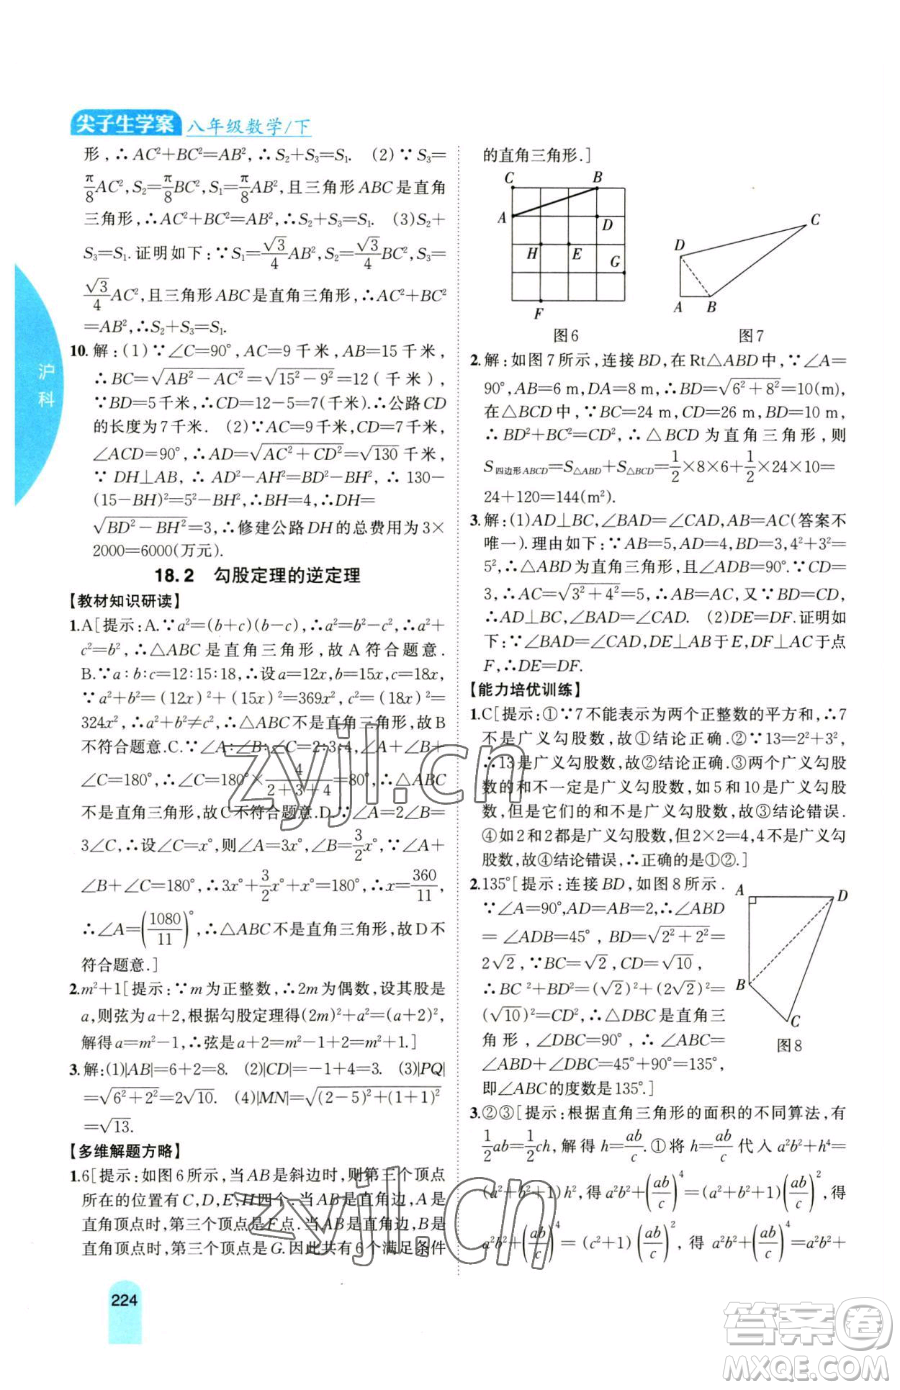 尖子生学案 八年级数学/下
形,∴AC²+BC²=AB²,∴S₂+S₃=S₁. (2)∵S₃=
π/8 AC²,S₂=π/8 BC²,S₁=π/8 AB²,且三角形ABC是直角
三角形,∴AC²+BC²=AB²,∴S₂+S₃=S₁. (3)S₂+
S₃=S₁.证明如下:∵S₁=√3/4 AB²,S₂=√3/4 BC²,S₃=
√3/4 AC²,且三角形ABC是直角三角形,∴AC²+BC²
=AB²,∴S₂+S₃=S₁.
10.解:(1)∵∠C=90°,AC=9千米,AB=15千米,
∴BC=√(AB²-AC²)=√(15²-9²)=12(千米),
∵BD=5千米,∴CD=12-5=7(千米).∴公路CD
的长度为7千米. (2)∵AC=9千米,CD=7千米,
∠ACD=90°,∴AD=√(AC²+CD²)=√130千米.
∵DH⊥AB,∴AD²-AH²=BD²-BH²,∴130-
(15-BH)²=5²-BH²,∴BH=4,∴DH=
√(BD²-BH²)=3,∴修建公路DH的总费用为3×
2000=6000(万元).
18.2 勾股定理的逆定理
【教材知识研读】
1.A[提示:A.∵a²=(b+c)(b-c)=b²-c²,∴a²+
c²=b²,∴△ABC是直角三角形,故A符合题意.
B.∵a:b:c=12:15:18,∴设a=12x,b=15x,c=18x,
∵a²+b²=(12x)²+(15x)²=369x²,c²=(18x)²=
324x²,∴a²+b²≠c²,∴△ABC不是直角三角形,故B
不符合题意.C.∵∠A:∠B:∠C=2:3:4,∠A+∠B+
∠C=180°,∴∠C=180°×4/(2+3+4)=80°,∴△ABC
不是直角三角形,故C不符合题意.D.∵∠A=2∠B=
3∠C,∴设∠C=x°,则∠A=3x°,∠B=3/2 x°,∵∠A+
∠B+∠C=180°,∴3x°+3/2 x°+x°=180°,∴x=360/11,
∴∠A=(1080/11)°,∴△ABC不是直角三角形,故D不
符合题意.]
2.m²+1[提示:∵m为正整数,∴2m为偶数,设其股是
a,则弦为a+2,根据勾股定理得(2m)²+a²=(a+2)²,
解得a=m²-1,∴弦是a+2=m²-1+2=m²+1.]
3.解:(1)|AB|=6+2=8. (2)|CD|=1+3=4. (3)|PQ|
=√(6²+2²)=2√10. (4)|MN|=√((2-5)²+(1+1)²)
=√13.
【多维解题方略】
1.6[提示:如图6所示,当AB是斜边时,则第三个顶点
所在的位置有C,D,E,H四个.当AB是直角边,A是
直角顶点时,第三个顶点是F点.当AB是直角边,B是
直角顶点时,第三个顶点是G.因此共有6个满足条件
224
的直角三角形.]
C B
A D
H E G
F
图6
C
D
A B
图7
2.解:如图7所示,连接BD,在Rt△ABD中,∵∠A=
90°,AB=6 m,DA=8 m,∴BD=√(6²+8²)=10(m).
在△BCD中,∵BC=24 m,CD=26 m,BD=10 m,
∴BD²+BC²=CD²,∴△BCD为直角三角形,则
S四边形ABCD=S△ABD+S△BCD=1/2×8×6+1/2×24×10=
24+120=144(m²).
3.解:(1)AD⊥BC,∠BAD=∠CAD,AB=AC(答案不
唯一).理由如下:∵BD=3,AD=4,AB=5,4²+3²=
5²,∴∠ADB=90°,∴∠ADC=90°.∵CD=3,∴AC
=√(3²+4²)=5,∴AB=AC,∴∠BAD=∠CAD.
∴AD⊥BC,∠BAD=∠CAD. (2)DE=DF.证明如
下:∵∠BAD=∠CAD,DE⊥AB于点E,DF⊥AC于点
F,∴DE=DF.
【能力培优训练】
1.C[提示:①∵7不能表示为两个正整数的平方和,∴7
不是广义勾股数,故①结论正确.②∵13=2²+3²,
∴13是广义勾股数,故②结论正确.③两个广义勾股数
的和不一定是广义勾股数,如5和10是广义勾股
数,但是它们的和不是广义勾股数,故③结论错误.
④如2和2都是广义勾股数,但2×2=4,4不是广义勾
股数,故④结论错误,∴正确的是①②.]
2.135°[提示:连接BD,如图8所示.
∵∠A=90°,AB=AD=2,∴∠ABD
=∠ADB=45°,BD=√(2²+2²)=
2√2,∵BC=√2,CD=√10,
∴BC²+BD²=(√2)²+(2√2)²
=(√10)²=CD²,∴△BCD是直角三
角形,∠DBC=90°,∴∠ABC=
∠ABD+∠DBC=45°+90°=135°,
即∠ABC的度数是135°.]
A D
B
C
图8
3.②③[提示:根据直角三角形的面积的不同算法,有
1/2 ab=1/2 ch,解得h=ab/c.①将h=ab/c代入a²b²+h⁴=
(a²+b²+1)h²,得a²b²+(ab/c)⁴=(a²+b²+1)(ab/c)²,得
a²b²+(ab/c)⁴=(c²+1)(ab/c)²,得a²b²+(ab/c)⁴=a²b²+
沪科
zyjl.cn
zyjl.cn
答案圈
MXQE.COM